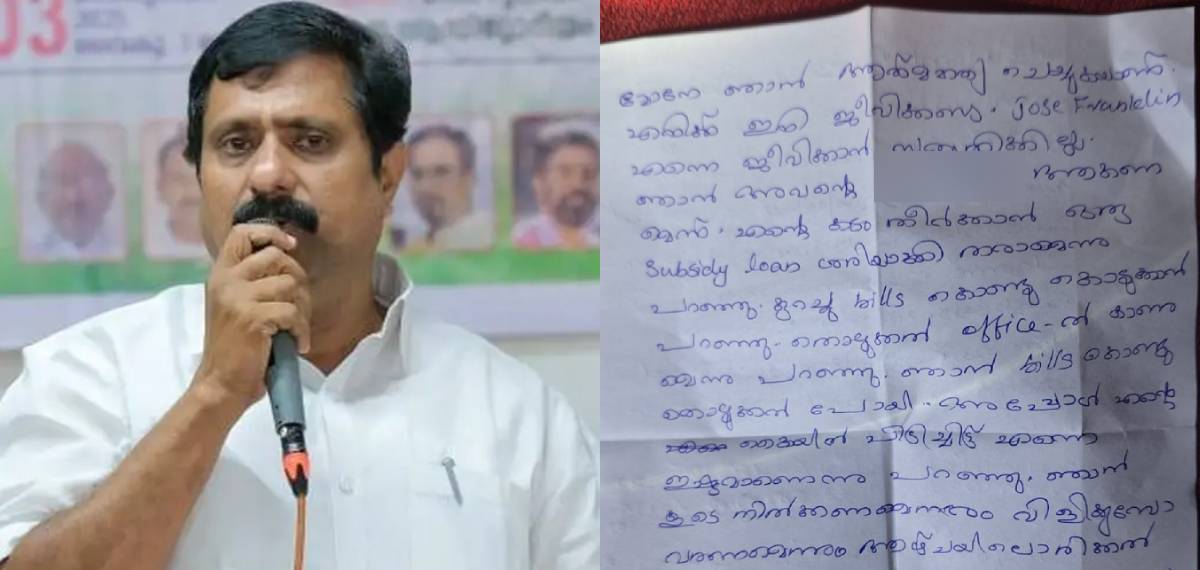 03
2025
മോനേ ഞാൻ ആത്മഹത്യ ചെയ്യുകയാണ്.
എനിക്ക് ഇനി ജീവിക്കണ്ട. Jose Franklin
എന്നെ ജീവിക്കാൻ സമ്മതിക്കില്ല.
ഞാൻ അവന്റെ ആകണ
മെന്ന്. എന്റെ കടം തീർക്കാൻ ഒരു
Subsidy loan ശരിയാക്കി തരാമെന്നു
പറഞ്ഞു. കുറച്ചു bills കൊണ്ടു കൊടുക്കാൻ
പറഞ്ഞു. office-ൽ കാണ
മെന്നു പറഞ്ഞു. ഞാൻ bills കൊണ്ടു
കൊടുക്കാൻ പോയി. അപ്പോൾ എന്റെ
കൈയിൽ പിടിച്ചിട്ട് എന്നെ
ഇഷ്ടമാണെന്നു പറഞ്ഞു. ഞാൻ
കൂടെ നിൽക്കണമെന്നും വിളിക്കുമ്പോ
വരണമെന്നും ആഴ്ചയിലൊരിക്കൽ